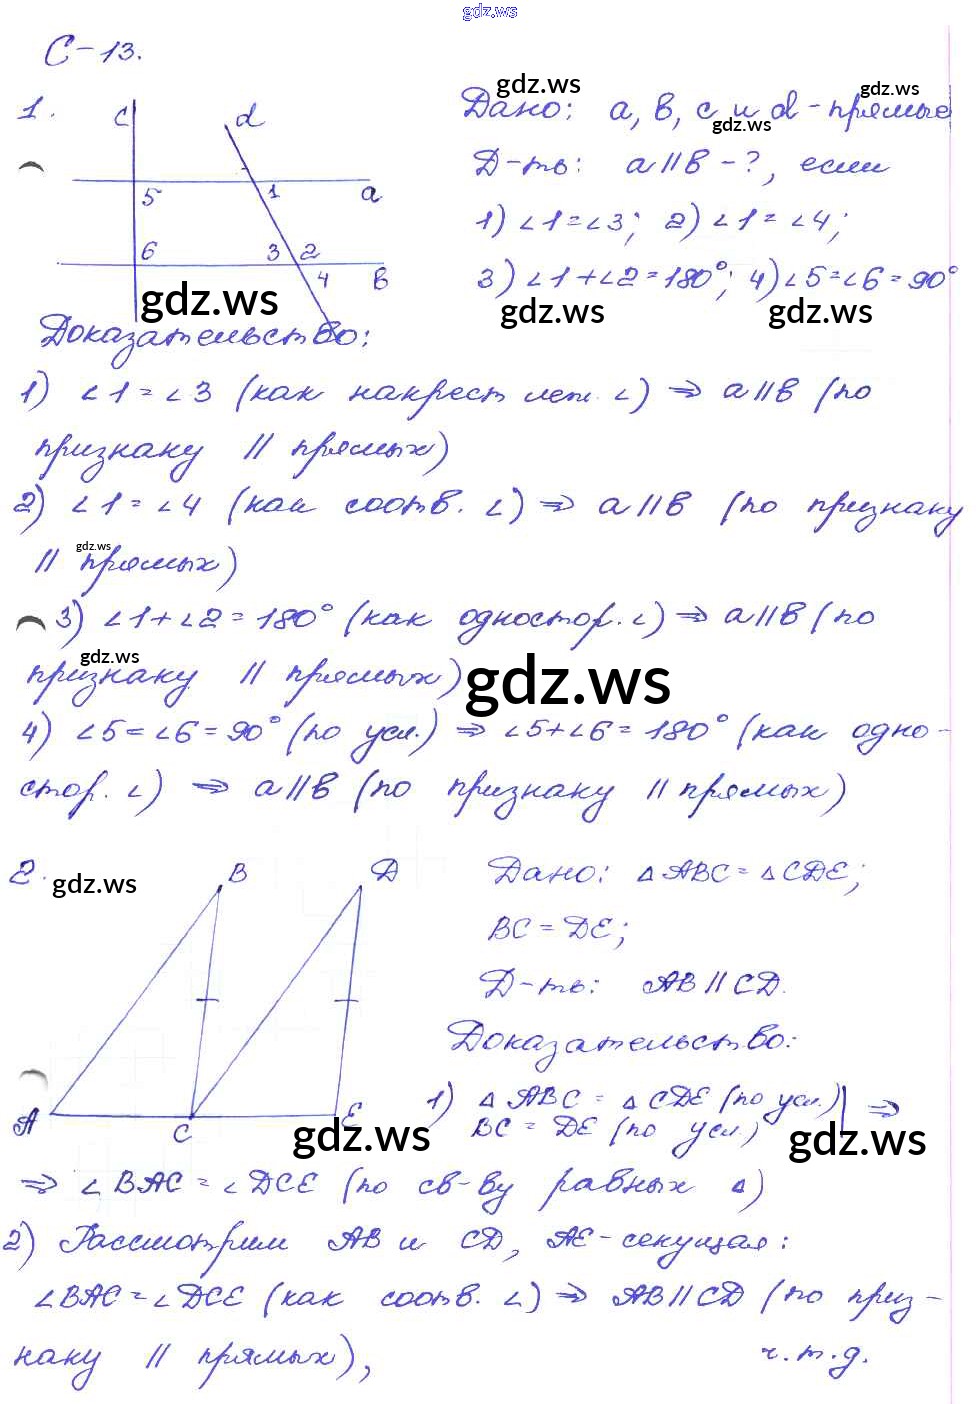 gdz.ws
С-13.
1.
c d
5 1 a
6 3 2
4 в
Дано: a, в, c и d - прямые
Д-ть: a || в - ?, если
1) ∠1 = ∠3; 2) ∠1 = ∠4;
3) ∠1 + ∠2 = 180°; 4) ∠5 = ∠6 = 90°
gdz.ws
gdz.ws
gdz.ws
gdz.ws
gdz.ws
gdz.ws
Доказательство:
1) ∠1 = ∠3 (как накрест леж. ∠) ⇒ a || в (по
признаку || прямых)
2) ∠1 = ∠4 (как соотв. ∠) ⇒ a || в (по признаку
|| прямых)
gdz.ws
3) ∠1 + ∠2 = 180° (как одностор. ∠) ⇒ a || в (по
признаку || прямых)
gdz.ws
gdz.ws
4) ∠5 = ∠6 = 90° (по усл.) ⇒ ∠5 + ∠6 = 180° (как одно-
стор. ∠) ⇒ a || в (по признаку || прямых)
2.
gdz.ws
B D
A C E
gdz.ws
Дано: △ABC = △CDE;
BC = DE;
Д-ть: AB || CD.
Доказательство:
1) △ABC = △CDE (по усл.) | ⇒
BC = DE (по усл.)
gdz.ws
⇒ ∠BAC = ∠DCE (по св-ву равных △)
2) Рассмотрим AB и CD, AE - секущая:
∠BAC = ∠DCE (как соотв. ∠) ⇒ AB || CD (по приз-
наку || прямых), ч.т.д.